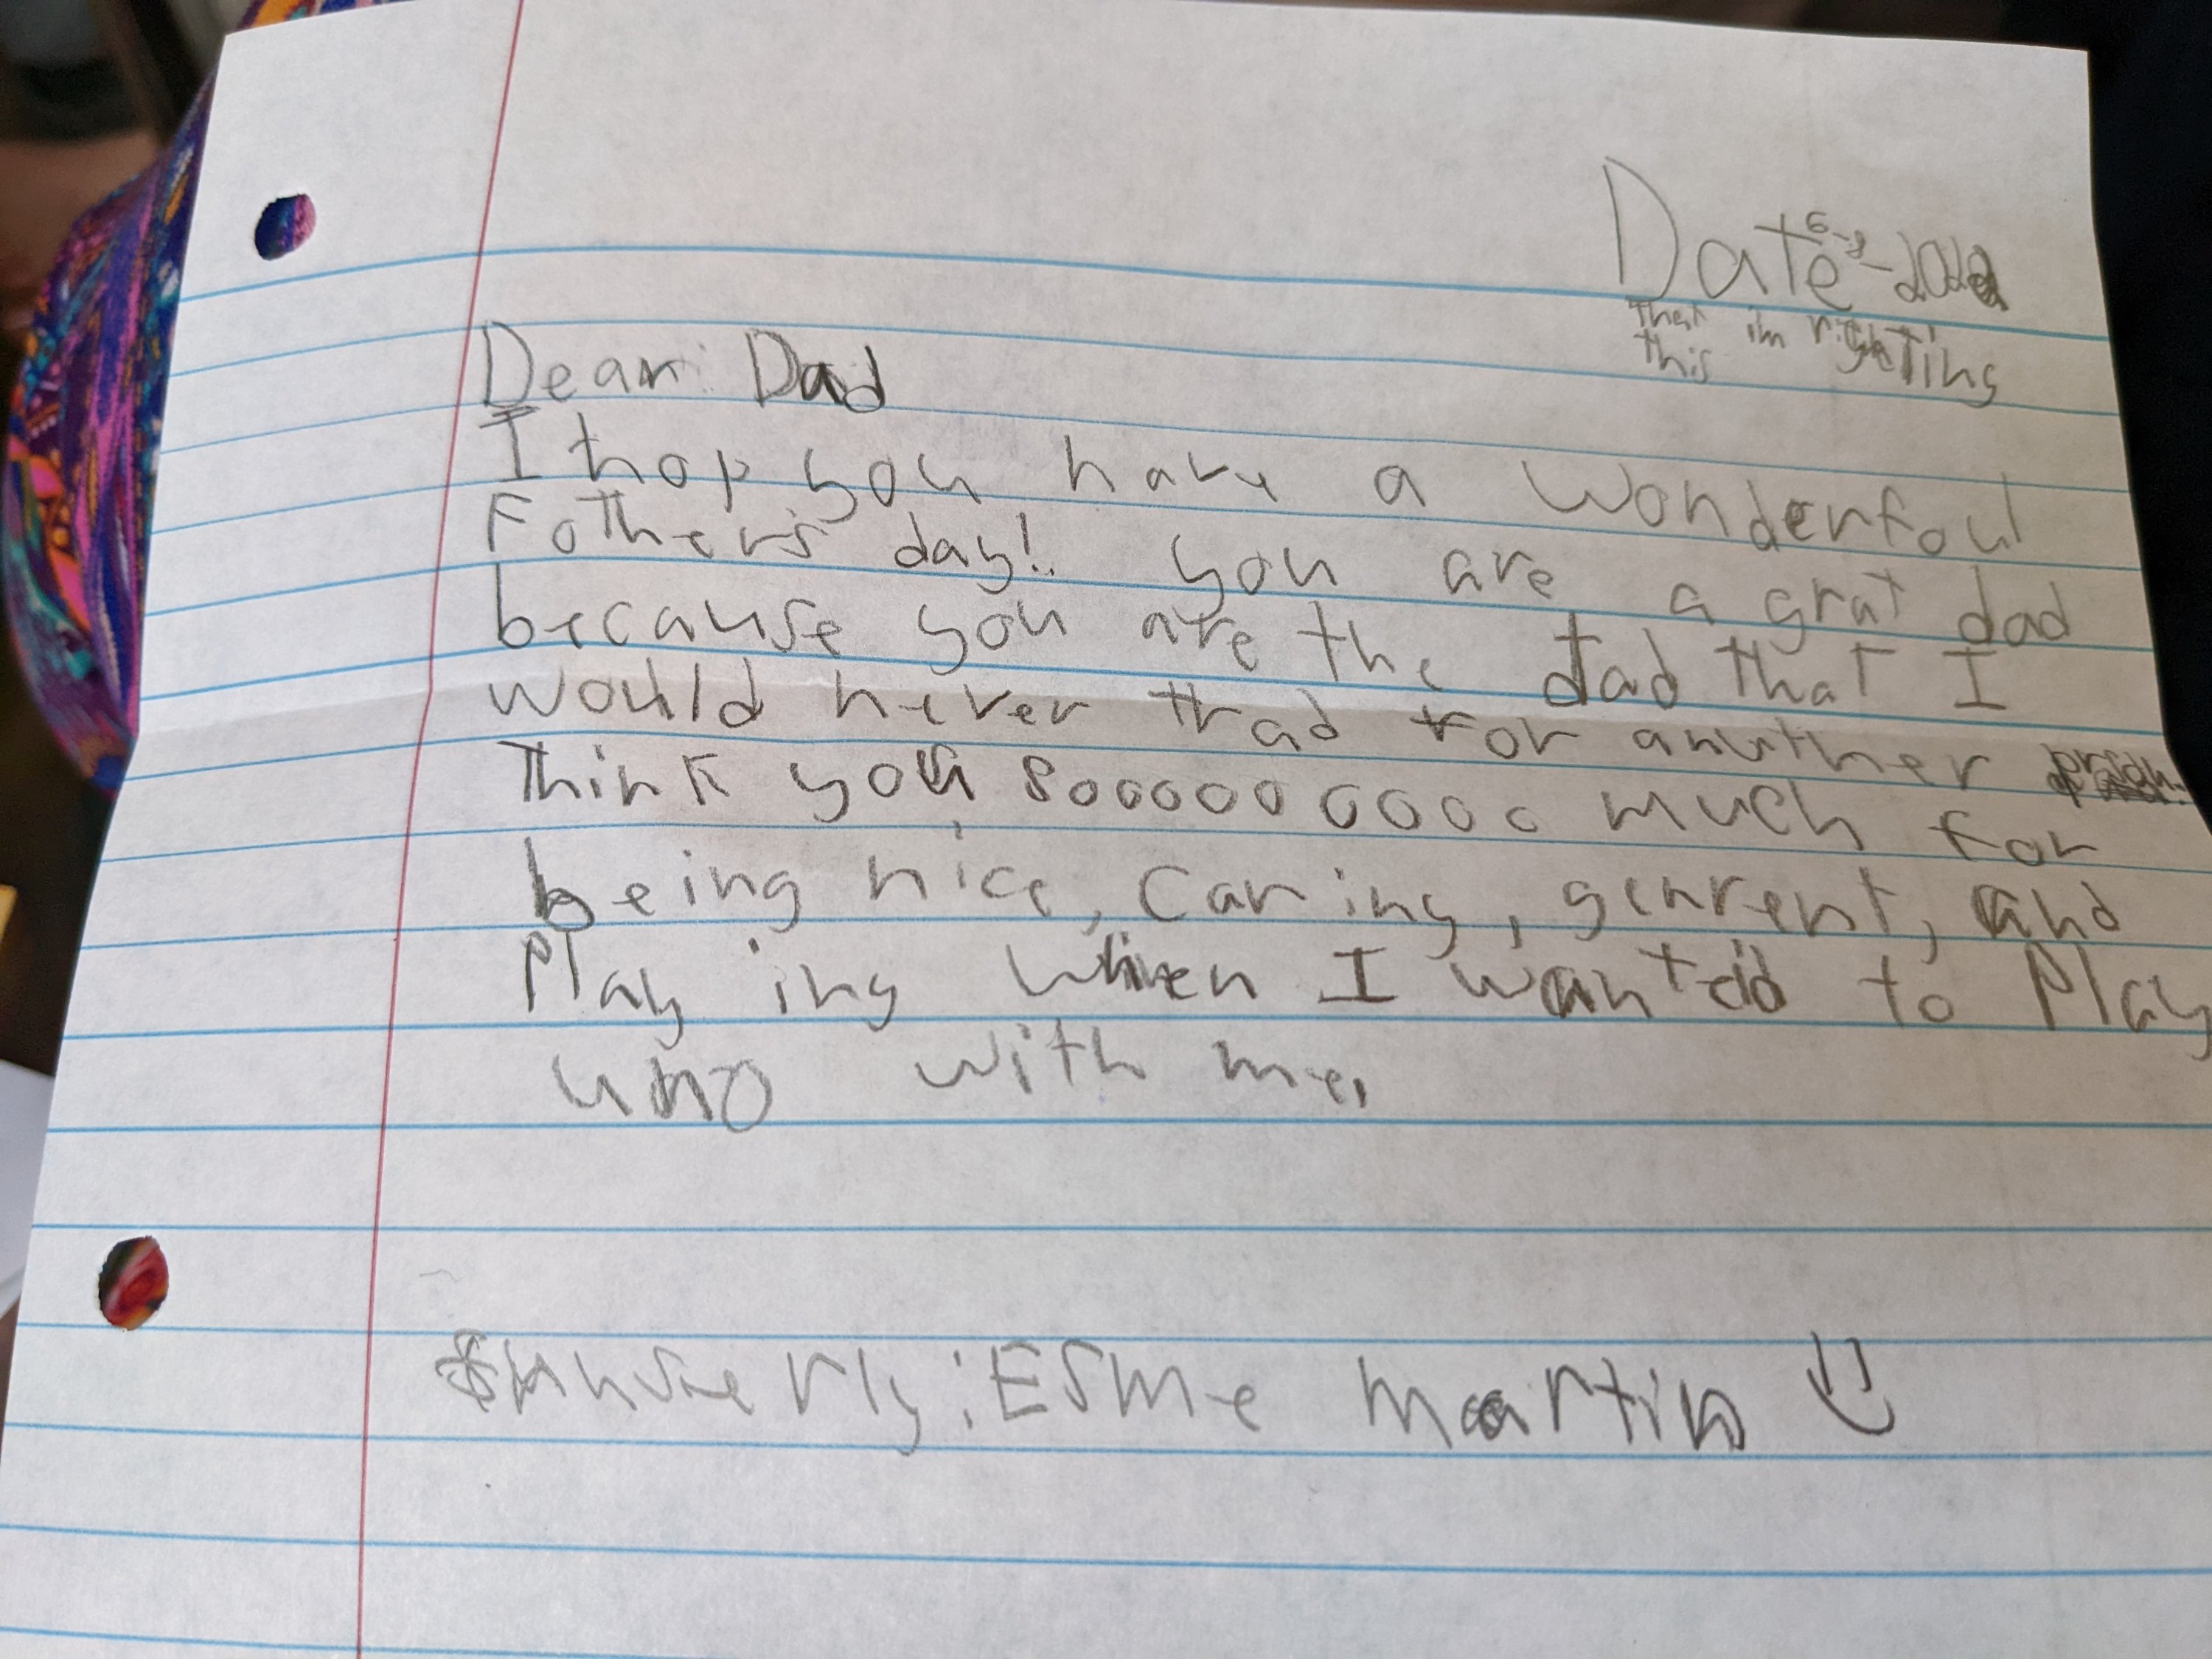 Date 6-9-2022
that im righting
this
Dear: Dad
I hop you have a wonderfoul
Fother's day! you are a grat dad
because you are the dad that I
would never trad for anuther prson.
Think you sooooooooooo much for
being nice, caring, genrent, and
Playing when I wanted to Play
uno with me.
Sunserly: ESme martin :)